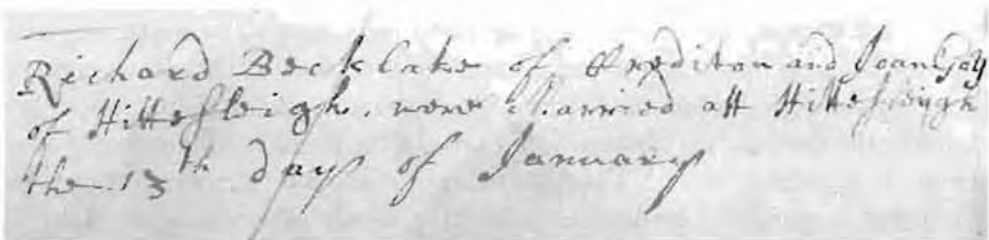 Richard Becklake of Crediton and Joan
of Hittesleigh. were Married att Hittesleigh
the 13th day of January